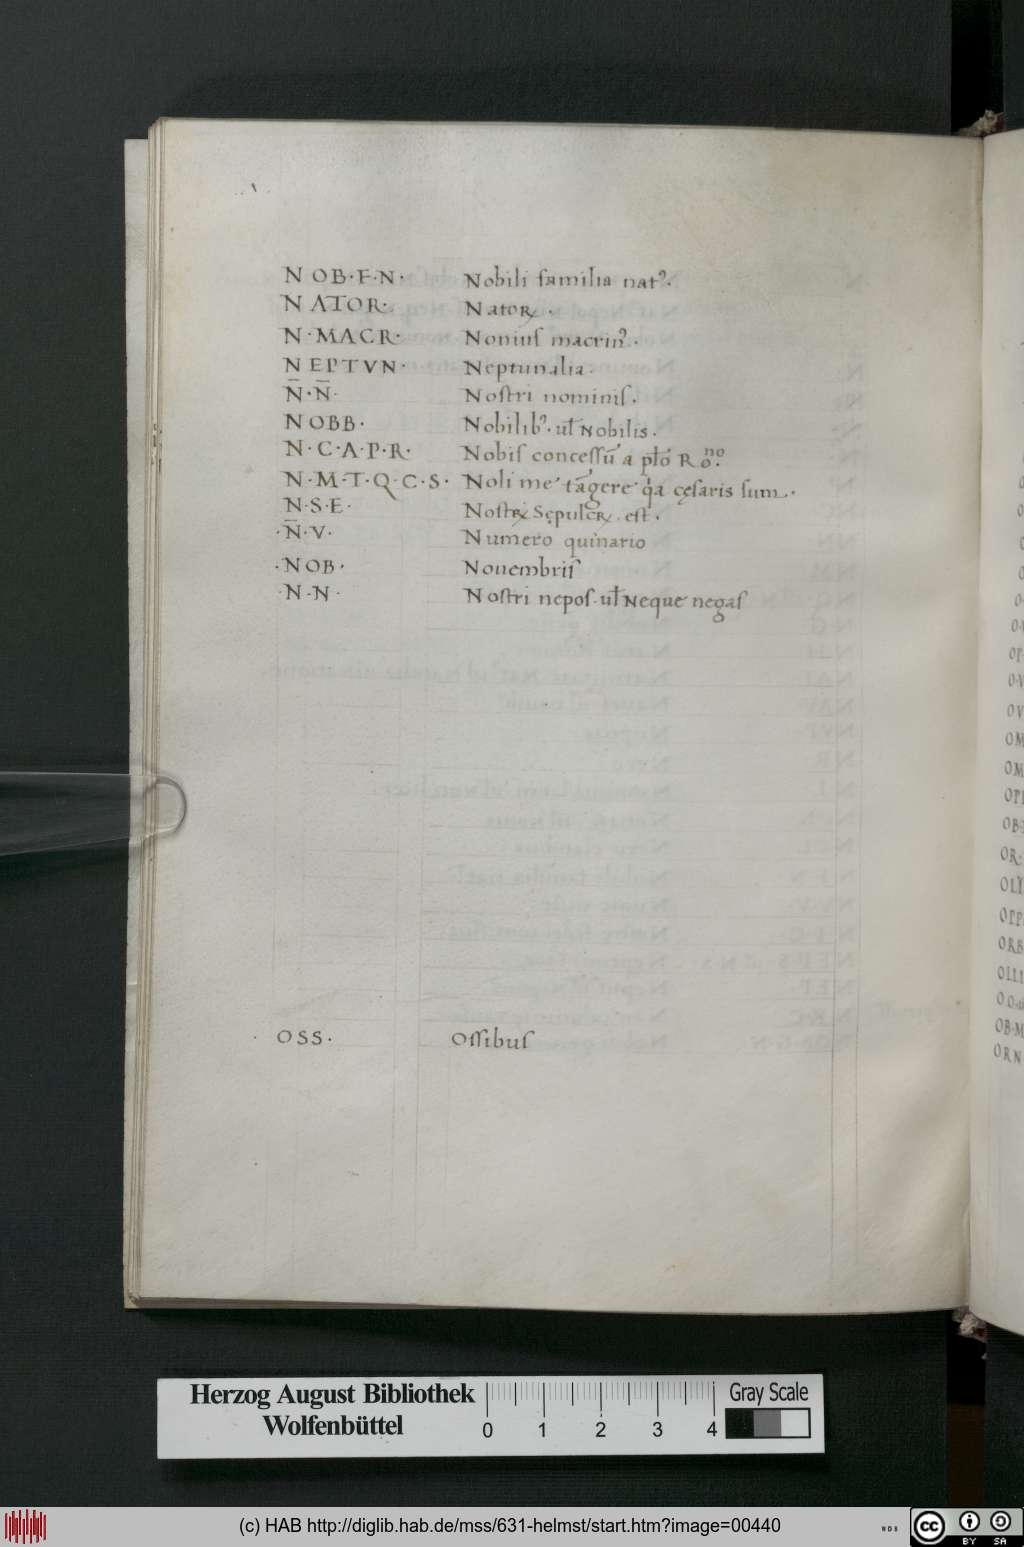 NOB·F·N· Nobili familia natꝰ·
NATOR· Natoꝝ·
N·MACR· Noniuſ macrinꝰ·
NEPTVN· Neptunalia·
N̅·N̅· Noſtri nominiſ·
NOBB· Nobilibꝰ· ul̄ Nobilis·
N·C·A·P·R· Nobiſ conceſſū a pl̄o Ro.ⁿᵒ
N·M·T·Q·C·S· Noli me tāgere qͣa cęſaris ſum·
N·S·E· Noſtꝝ Sępulcꝝ. eſt·
·N̅·V· Numero quinario
·NOB· Nouembriſ
·N·N· Noſtri nepoſ· ul̄ Neque negaſ
OSS· Oſſibuſ
O·
OP
O·V
OV
OM
OM
OPP
OB·
OR·
OLY
OPP
ORB
OLLI
OB·M
ORN
Herzog August Bibliothek
Wolfenbüttel
0 1 2 3 4
Gray Scale
(c) HAB http://diglib.hab.de/mss/631-helmst/start.htm?image=00440
WDB
cc BY SA